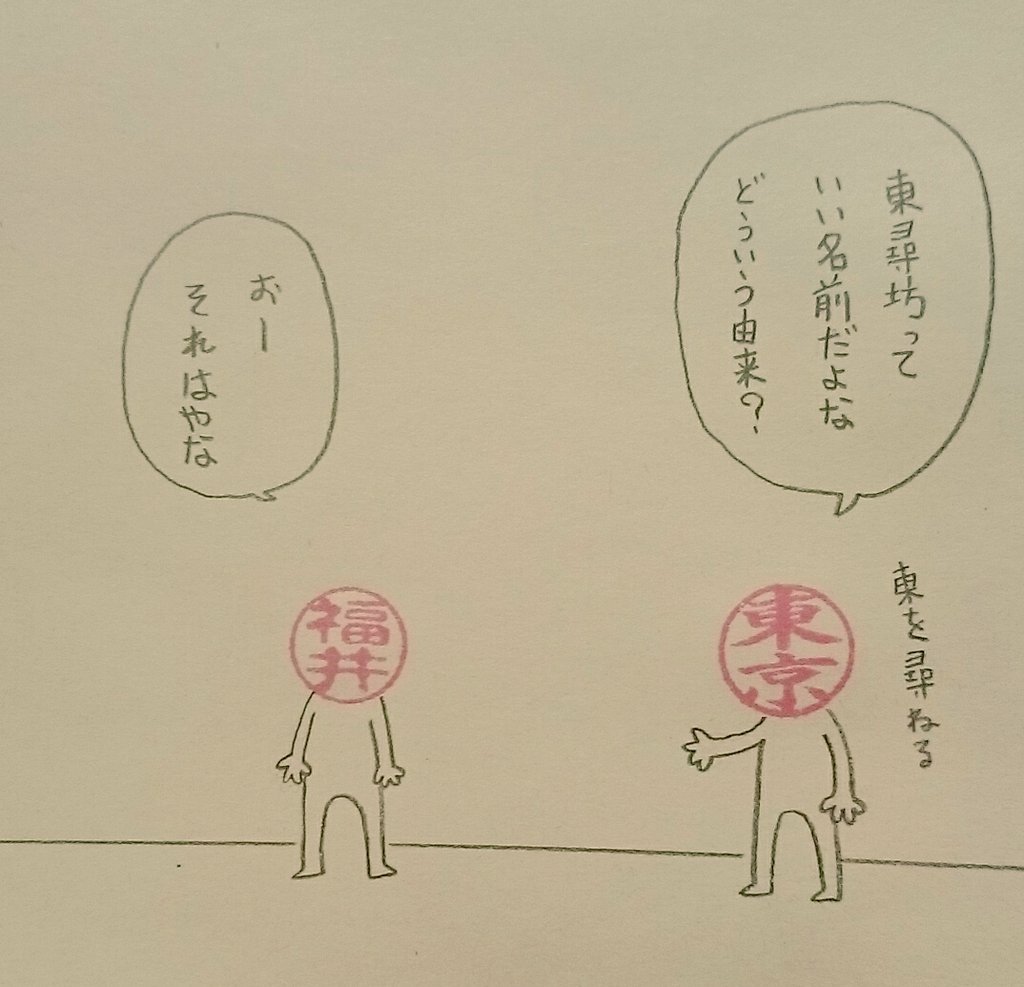 東尋坊って
いい名前だよな
どういう由来?
東を尋ねる
東京
おー
それはやな
福井